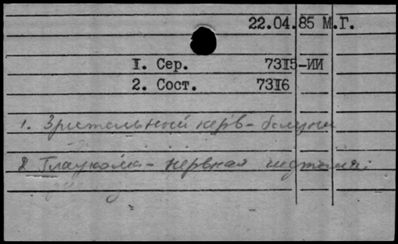 22.04.85 М.Г.
I. Сер. 73I5-ИИ
2. Сост. 73I6
1. Зрительный нерв-
2. Глаукома - нервная